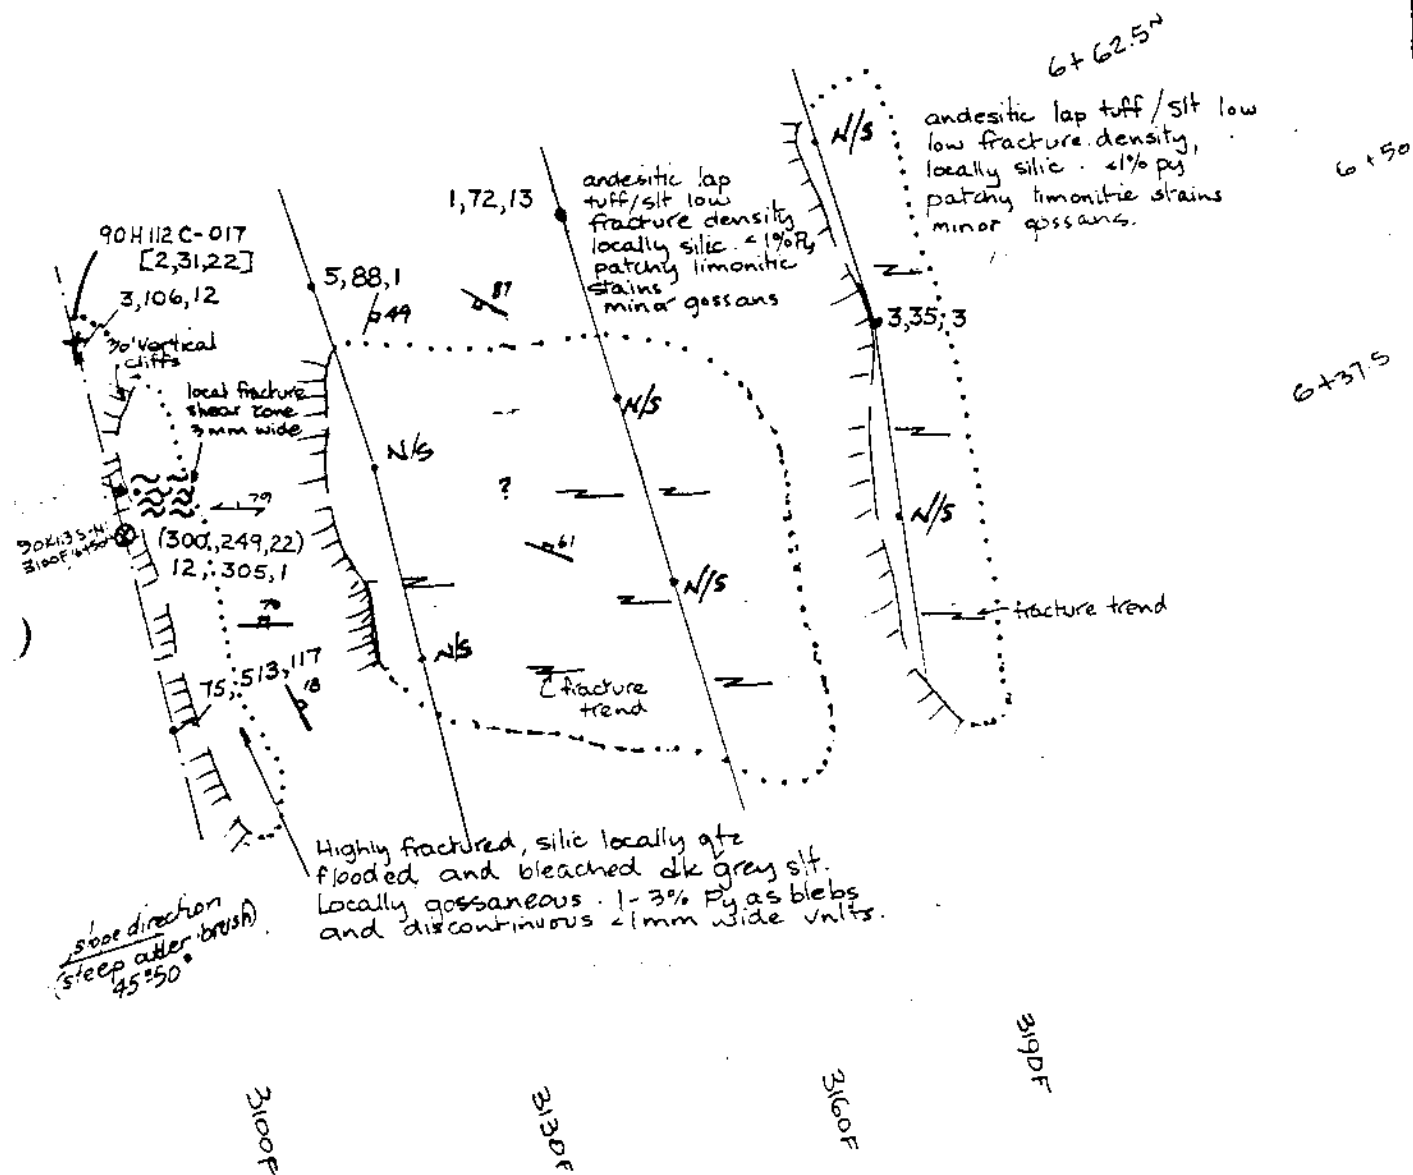 6+62.5N
andesitic lap tuff/slt low
low fracture density,
locally silic. <1% py
patchy limonitic stains
minor gossans.
6+50
6+37.5
N/S
3,35,3
N/S
fracture trend
1,72,13
andesitic lap
tuff/slt low
fracture density
locally silic. <1% Py
patchy limonitic
stains
minor gossans
90H112C-017
[2,31,22]
3,106,12
30' Vertical
cliffs
local fracture
shear zone
3mm wide
5,88,1
49
87
N/S
N/S
?
79
3100F
(300,249,22)
12,305,1
61
N/S
70
N/S
75,513,117
18
fracture
trend
Highly fractured, silic locally qtz
flooded and bleached dk grey slt.
Locally gossaneous. 1-3% Py as blebs
and discontinuous <1mm wide vnlts.
slope direction
(steep alder brush)
45°-50°
3100F
3130F
3160F
3190F